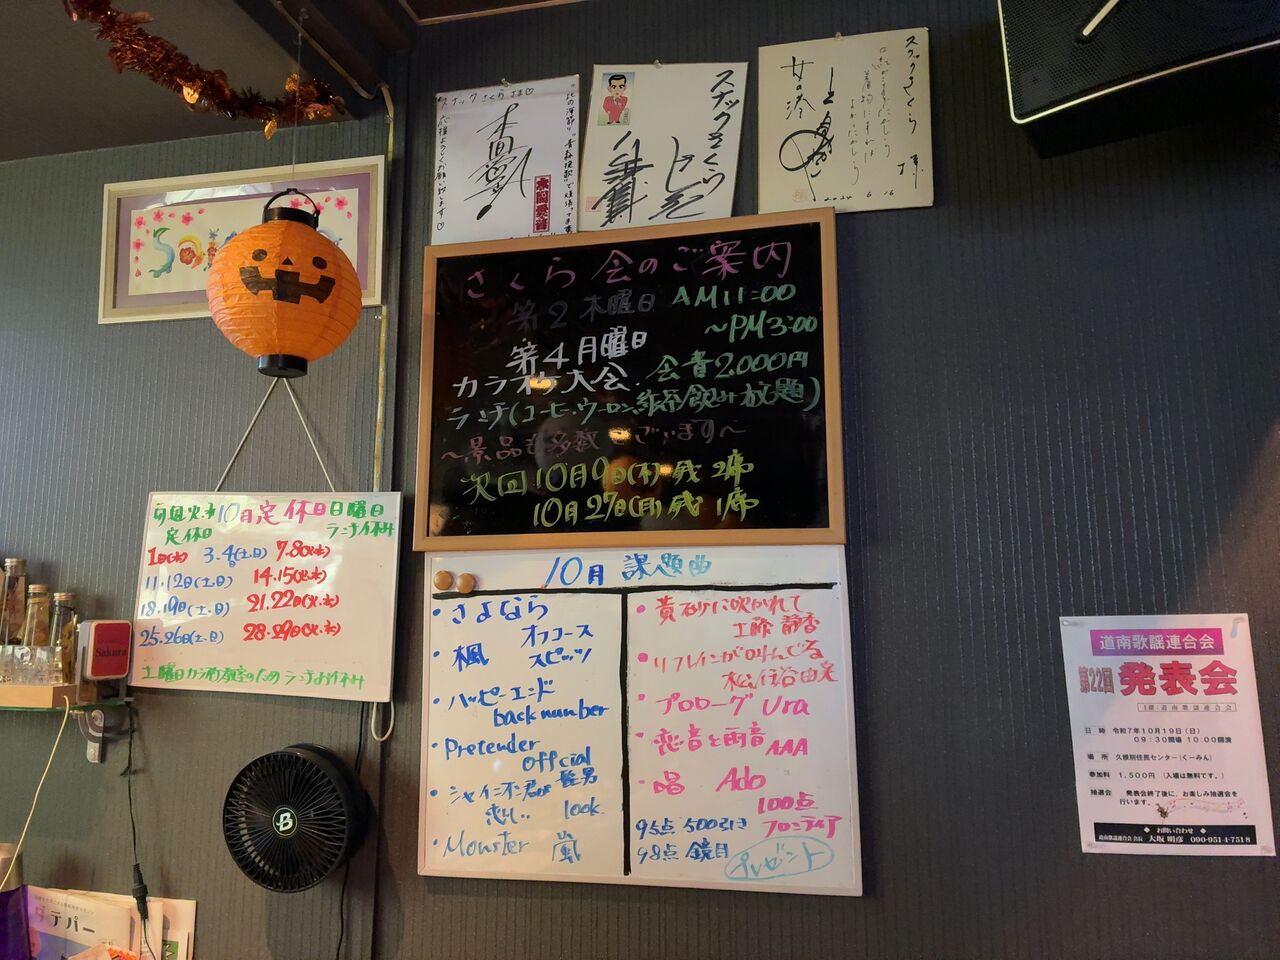 スナックさくらさま♡
"北の海節り"
応援よろしくお願い致します♡
スナックさくら
スナックさくら 様
女の港
2024 6 16
さくら会のご案内
第2 木曜日 AM11:00
〜PM3:00
第4月曜日
カラオケ大会 会費2000円
ランチ(コーヒー、ウーロン、緑茶飲み放題)
〜景品も多数ございます〜
次回10月9日(木)残2席
10月27日(月)残1席
毎週火.水 10月定休日 日曜日
定休日 ランチ休み
1日(水) 3.4日(土.日) 7.8(火.水)
11.12日(土.日) 14.15(火.水)
18.19日(土.日) 21.22日(火.水)
25.26日(土.日) 28.29日(火.水)
土曜日カラオケ教室のため ランチお休み
Sakura
10月 課題曲
・さよなら
オフコース
・楓 スピッツ
・ハッピーエンド
back number
・Pretender
official
髭男
・シャイニン君が
恋し.. look
・Monster 嵐
・黄砂に吹かれて
工藤静香
・リフレインが叫んでる
松任谷由実
・プロローグ Uru
・恋音と雨空 AAA
・唱 Ado
100点
95点 500引き フロンティア
98点 鏡月 プレゼント
道南歌謡連合会
第22回 発表会
主催:道南歌謡連合会
日時 令和7年10月19日(日)
09:30開場 10:00開演
場所 久根別住民センター(くーみん)
参加料 1,500円 (入場は無料です。)
抽選会 発表会終了後に、お楽しみ抽選会を
行います。
◆ お問い合わせ ◆
道南歌謡連合会 会長 大坂 明彦 090-9514-7518
B
ダテパー